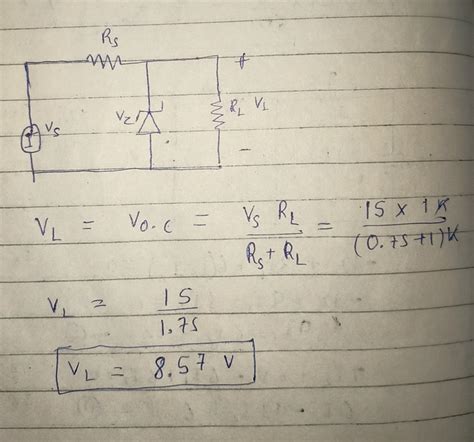 Rs
+
Vs
Vz
RL VL
-
VL = Vo.c = Vs RL / Rs + RL = 15 x 1K / (0.75+1)K
VL = 15 / 1.75
VL = 8.57 V